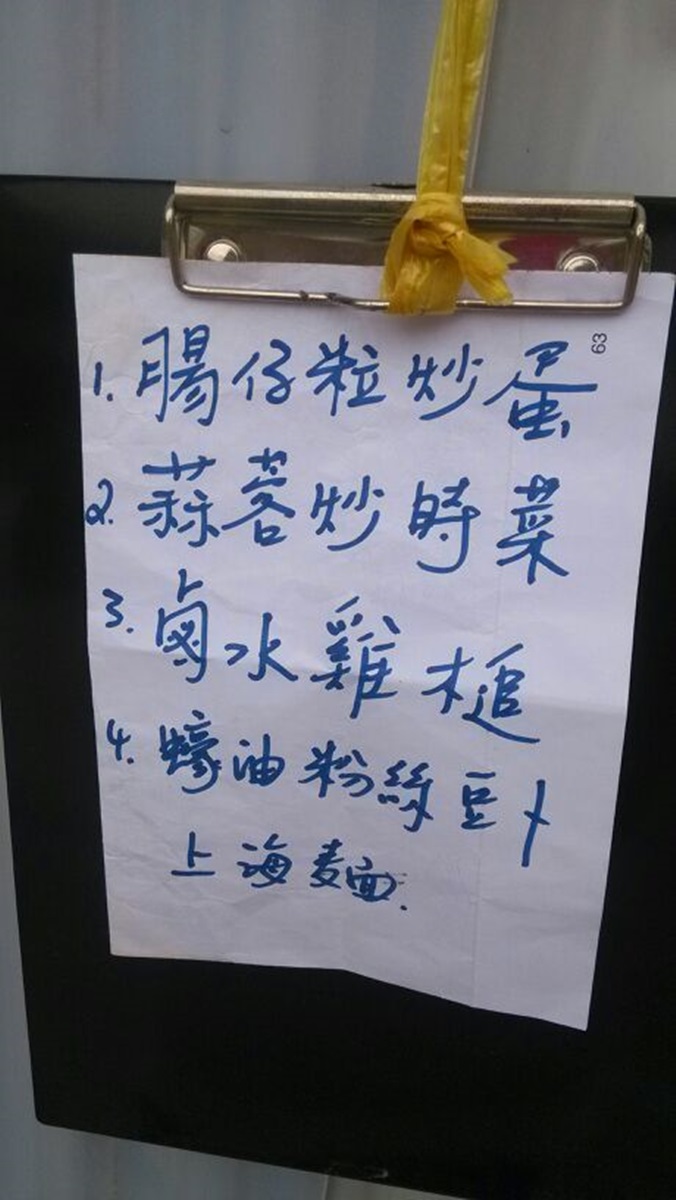 63
1. 腸仔粒炒蛋
2. 蒜蓉炒時菜
3. 鹵水雞槌
4. 蠔油粉絲豆卜
上海麵.